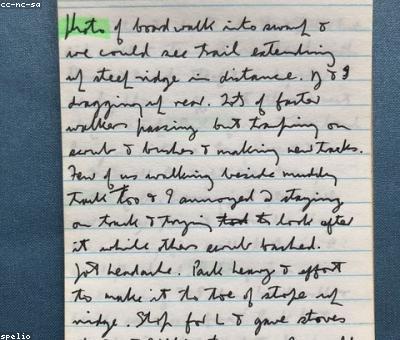 cc-nc-sa
Photo of boardwalk into swamp &
we could see trail extending
up steep ridge in distance. D & I
dragging up rear. Lots of faster
walkers passing but tramping on
scrub & bushes & making new tracks.
Few of us walking beside muddy
track too & I annoyed D staying
on track & trying to look after
it while others scrub bashed.
Got headache. Pack heavy & effort
to make it to toe of slope up
ridge. Stop for L & gave stoves
spelio